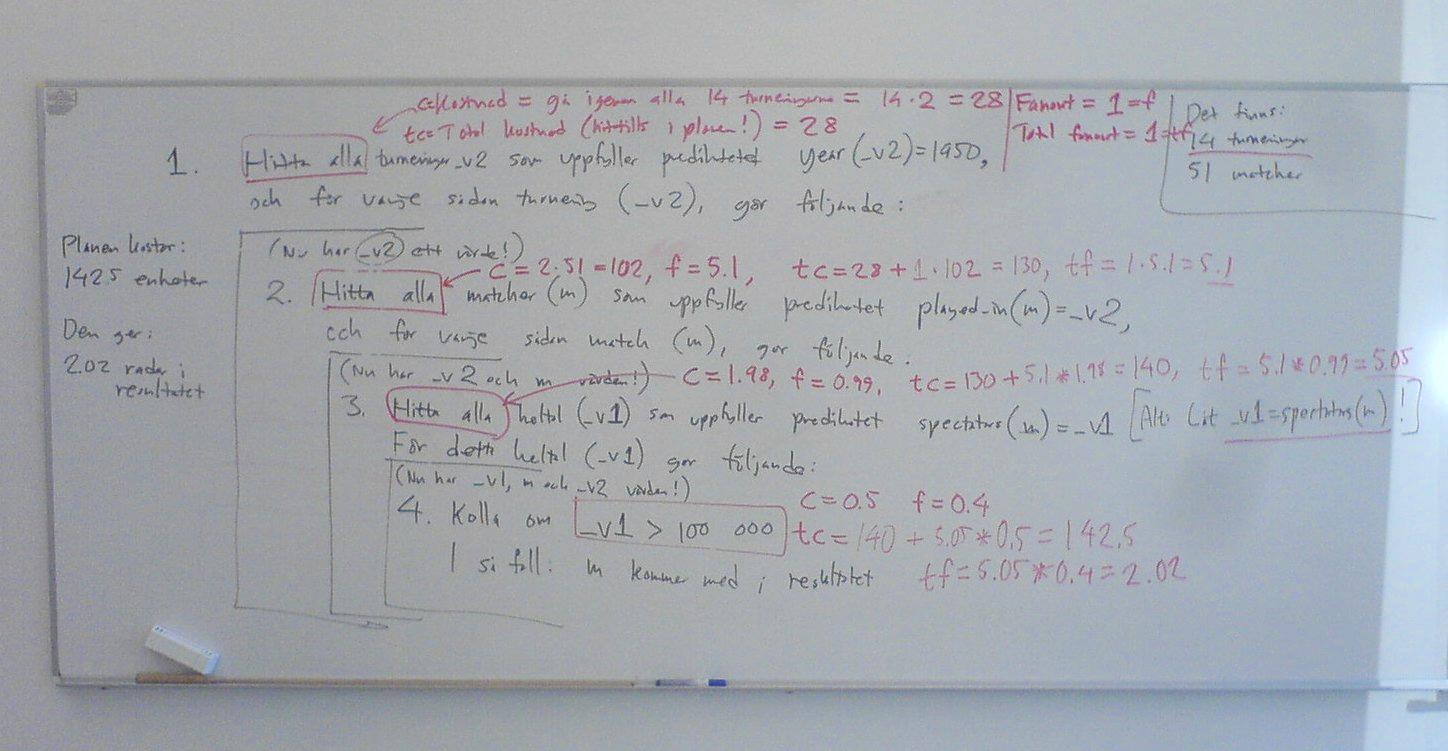 c=kostnad = gå igenom alla 14 turneringarna = 14·2 = 28
tc=Total kostnad (hittills i planen!) = 28
Fanout = 1=f
Total fanout = 1=tf
Det finns:
14 turneringar
51 matcher
1. Hitta alla turneringar _v2 som uppfyller predikatet year(_v2)=1950,
och för varje sådan turnering (_v2), gör följande:
Planen kostar:
142.5 enheter
Den ger:
2.02 rader i
resultatet
(Nu har _v2 ett värde!)
c = 2·51 = 102, f = 5.1, tc = 28 + 1·102 = 130, tf = 1·5.1 = 5.1
2. Hitta alla matcher (m) som uppfyller predikatet played_in(m)=_v2,
och för varje sådan match (m), gör följande:
(Nu har _v2 och m värden!)
c = 1.98, f = 0.99, tc = 130 + 5.1*1.98 = 140, tf = 5.1*0.99 = 5.05
3. Hitta alla heltal (_v1) som uppfyller predikatet spectators(m) = _v1 [Alts låt _v1=spectators(m)!]
För detta heltal (_v1) gör följande:
(Nu har _v1, m och _v2 värden!)
4. Kolla om _v1 > 100 000
c=0.5 f=0.4
tc= 140 + 5.05*0.5 = 142.5
I så fall: m kommer med i resultatet
tf=5.05*0.4=2.02